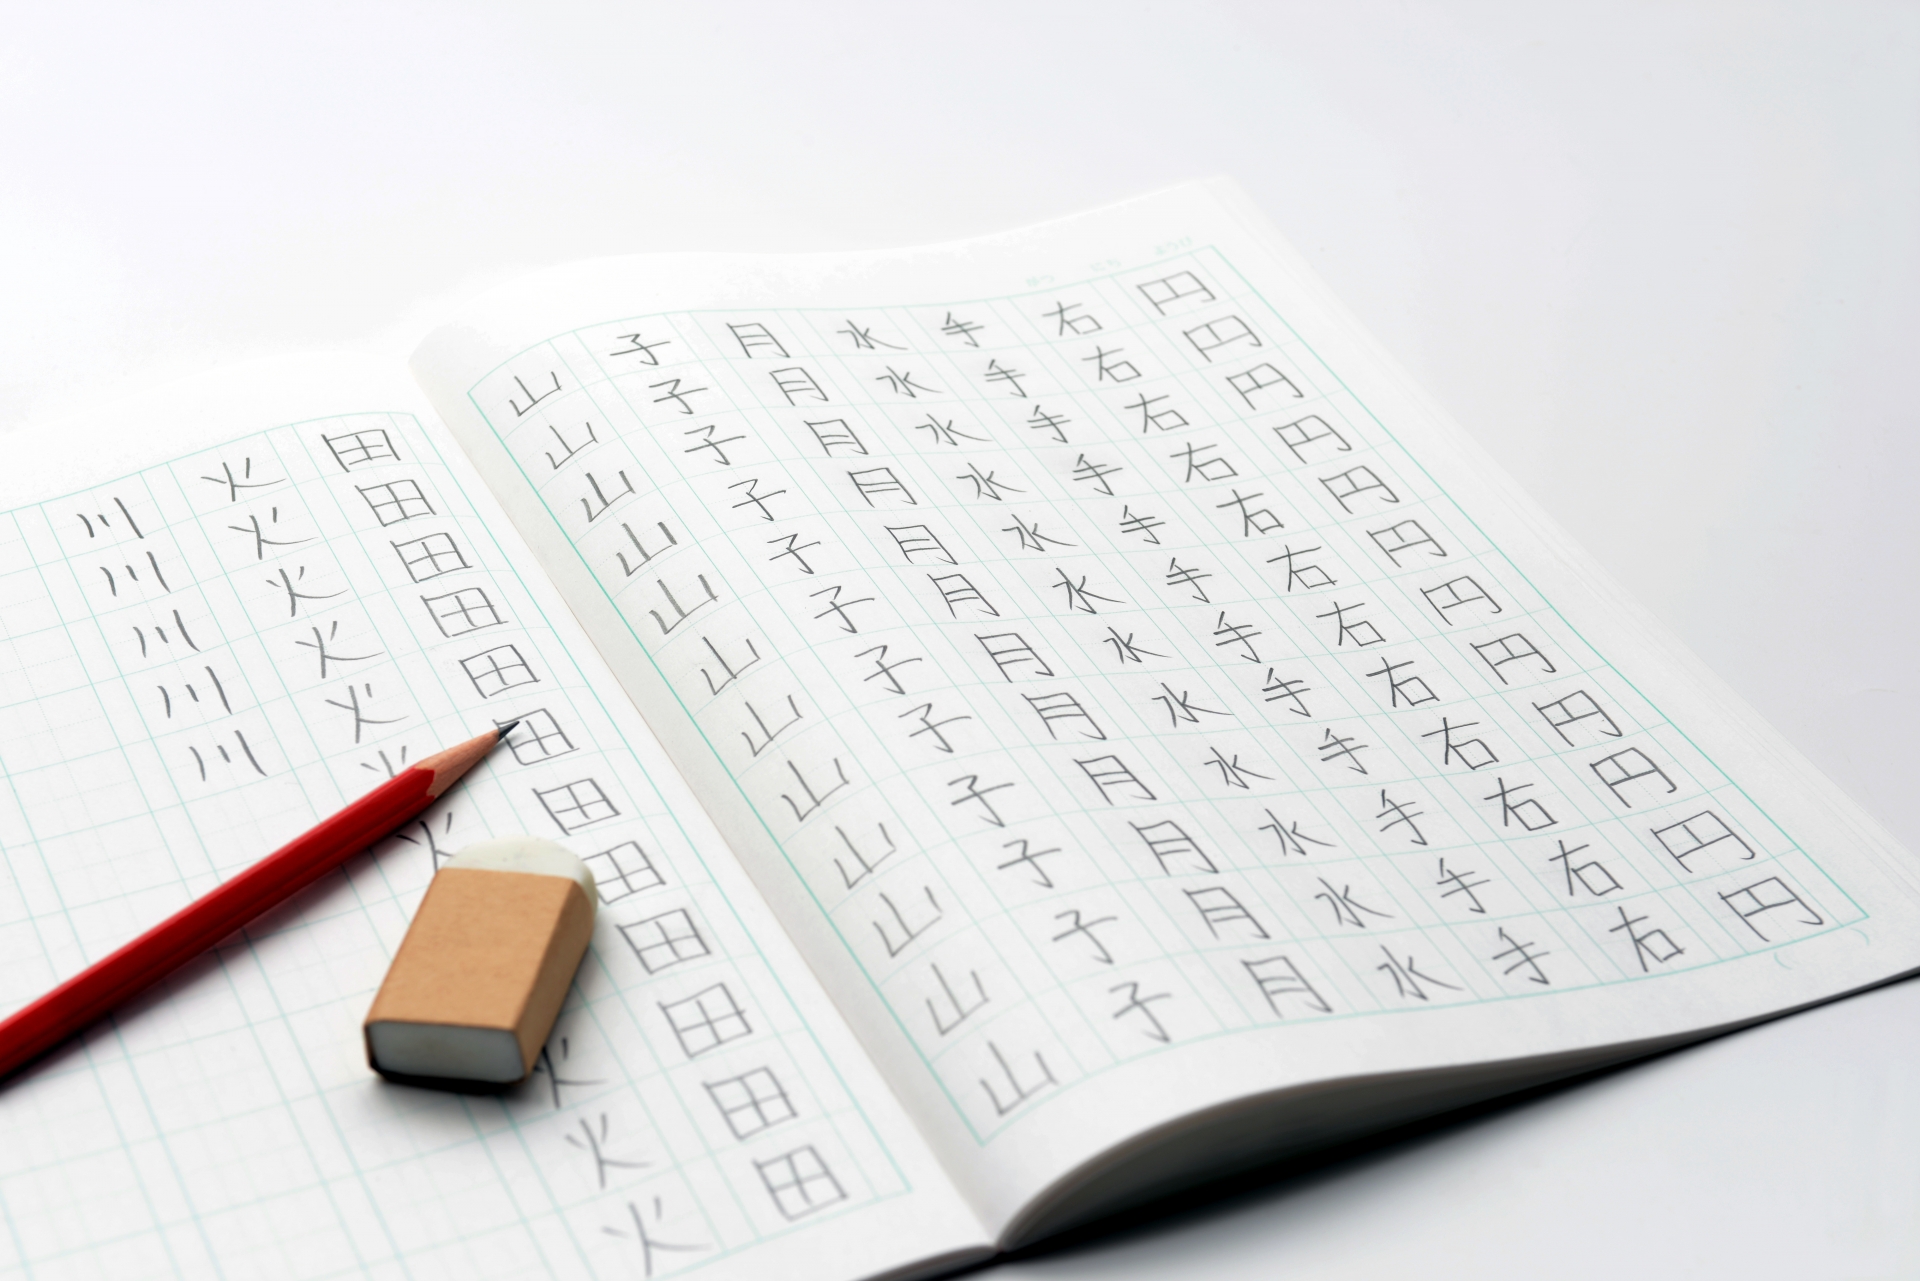 円円円円円円円円円円円円
右右右右右右右右右右右右
手手手手手手手手手手手手
水水水水水水水水水水水水
月月月月月月月月月月月月
子子子子子子子子子子子子
山山山山山山山山山山山山
田田田田田田田田田田田田
火火火火火火火火火火
川川川川川